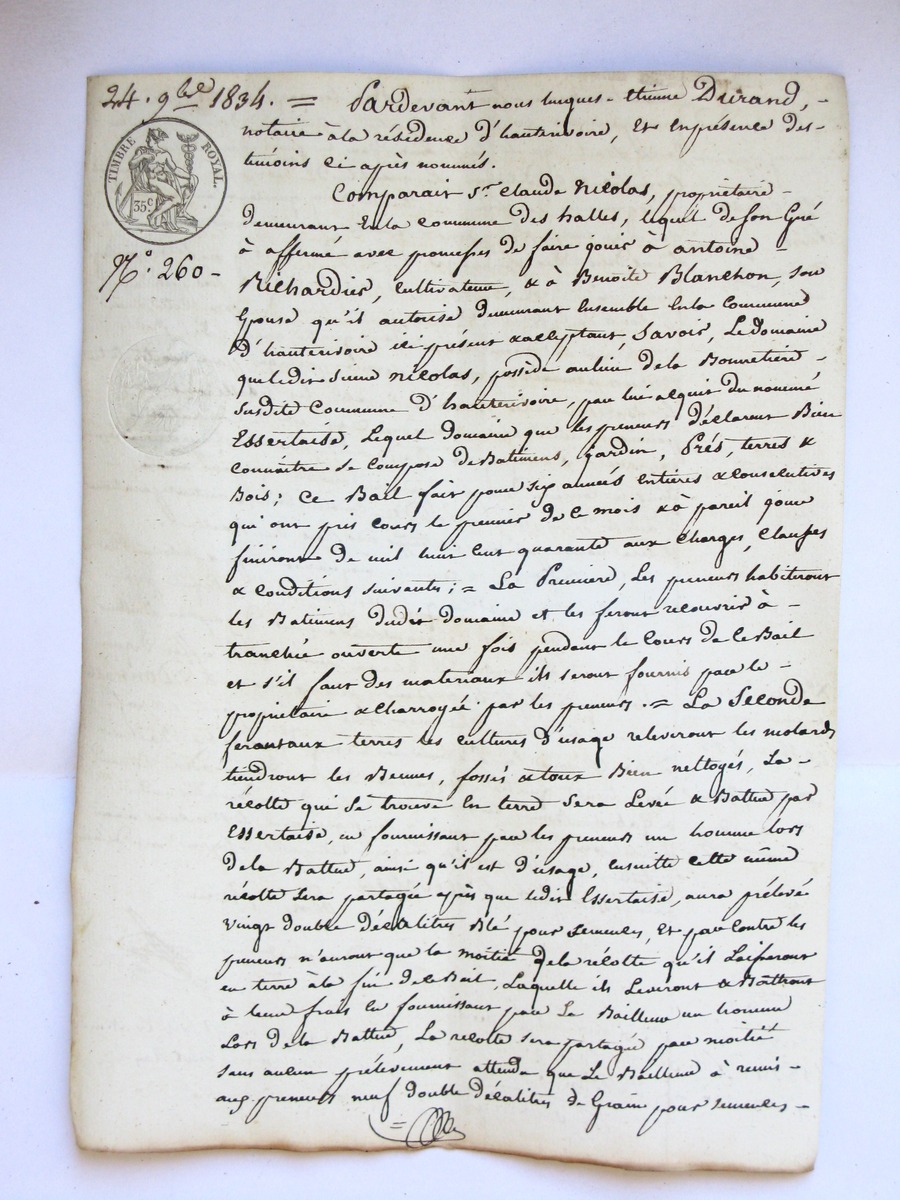 24. 9bre 1834. = Pardevant nous huques-etienne Durand, -
TIMBRE ROYAL.
35c
No. 260 -
notaire à la résidence d'hauterivoire, et en présence des-
témoins ci après nommés.
Comparait Sr. Claude Nicolas, propriétaire -
demeurant en la commune des halles, lequel de son Gré
à affermé avec promesses de faire jouir à antoine -
Richardier, Cultivateur, & à Benoite Blanchon, son
Epouse qu'il autorise demeurant Ensemble En la Commune
d'hauterivoire ici présent & acceptant, Savoir, Le domaine
que ledit sieur Nicolas, possède au lieu de la Bonnetière -
Susdite Commune d'hauterivoire, par lui acquit du nommé
Essertaise, Lequel domaine que les preneurs déclarent Bien
connaitre se Compose de Batimens, jardin, Prés, terres &
Bois; Ce Bail fait pour six années entières & consecutives
qui ont pris cours le premier de ce mois & à pareil jour
finiront de mil huit cent quarante aux charges, Clauses
& Conditions suivantes; = La Premiere, Les preneurs habiteront
les Batimens dudit domaine et les feront recouvrir à -
tranchée ouverte une fois pendant le Cours de ce Bail
et s'il faut des materiaux ils seront fournis par le -
propriétaire & charroyée par les preneurs. = La Seconde
feront aux terres les cultures d'usage releveront les molards
tiendront les Bennes, fossés & toux Bien nettoyés, La -
récolte qui se trouve En terre Sera Levée & Battue par
Essertaise, en fournissant par les preneurs un homme lors
de la Battue, ainsi qu'il est d'usage, ensuitte cette même
récolte Sera partagée après que ledit Essertaise, aura prélevé
vingt double Décalitres Blé pour semences, Et par contre les
preneurs n'auront que la moitié de la récolte qu'il Laisseront
en terre à la fin de ce Bail, Laquelle ils Leveront & Battront
à leur frais En fournissant par Le Bailleur un homme
Lors de la Battue, La récolte sera partagée par moitié
sans aucun prélevement attendu que Le Bailleur à remis -
aux preneurs neuf double Décalitres de Grain pour semences -
=